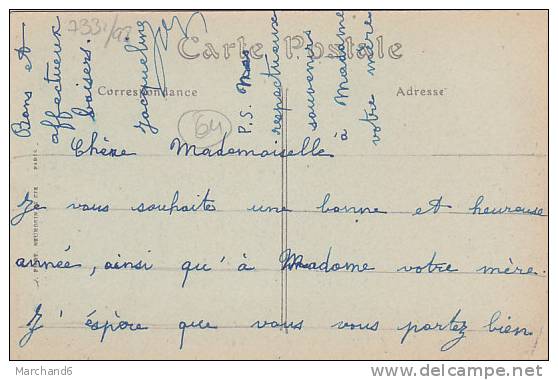 7332/92
Carte Postale
Correspondance
Adresse
64
Chère Mademoiselle
Je vous souhaite une bonne et heureuse
année, ainsi qu'à Madame votre mère.
J'éspère que vous vous portez bien.
Bons et
affectueux
baisers.
Jacqueline
P.S. Mes
respectueux
souvenirs
à Madame
votre mère
Marchand6
www.delcampe.net